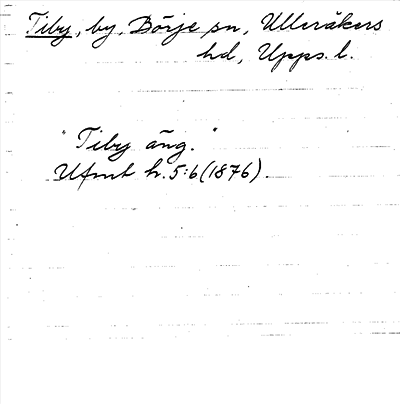 Tiby, by, Börje sn, Ulleråkers
hd, Upps. l.
"Tiby äng."
Ufmt h. 5:6 (1876).